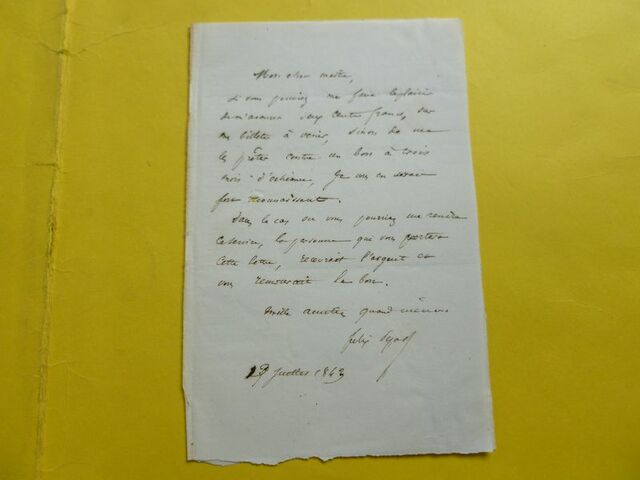 Mon cher maître,
Si vous pouviez me faire le plaisir
de m'avancer deux cents francs, sur
me billets à venir, sinon de me
les prêter contre un bon à trois
mois d'échéance, je vous en serais
fort reconnaissant.
Dans le cas où vous pourriez me rendre
ce service, la personne que vous portera
cette lettre, recevrait l'argent et
vous remettrait le bon.
amitiés quand même
felix
juillet 1843